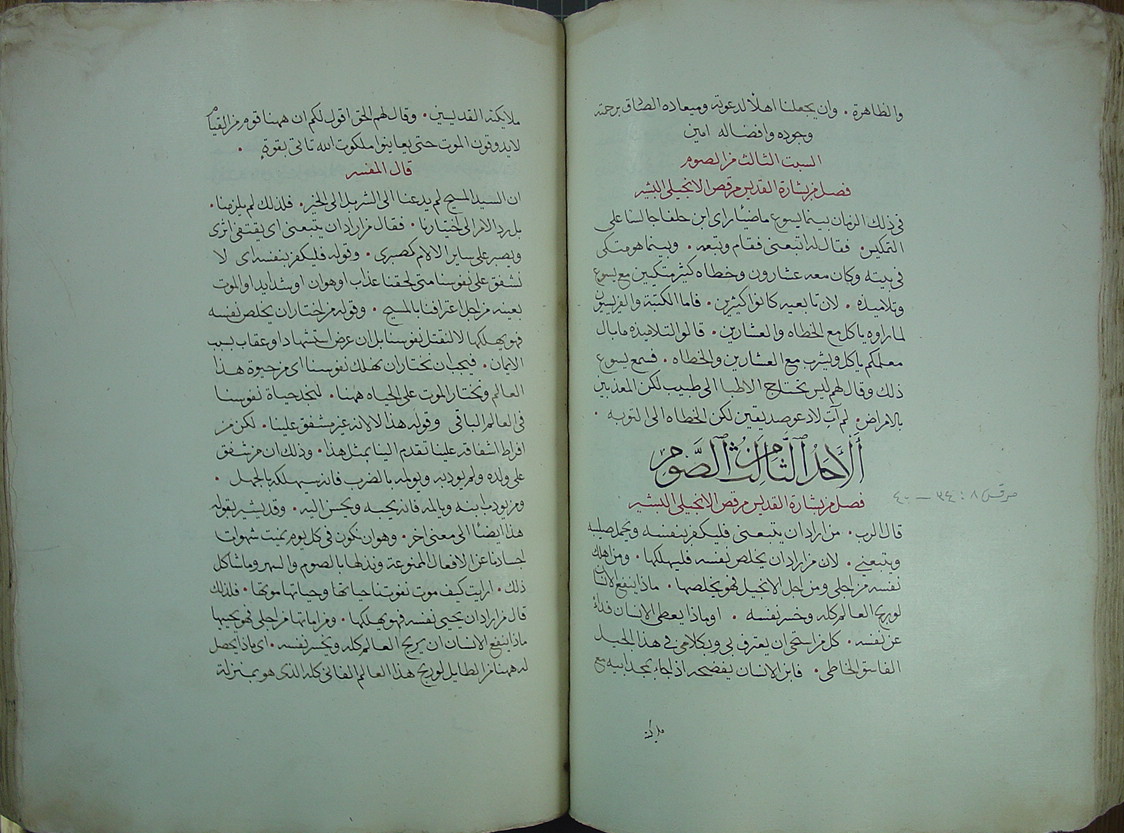 والظاهرة . وان يجعلنا اهلًا لدعوته وميعاده الصادق برحمته
وجوده وافضاله امين
السبت الثالث من الصوم
فصل من بشارة القديس مرقص الانجيلي البشير
في ذلك الزمان بينما يسوع ماضيًا راى ابن حلفا جالسا على
التمكيس . فقال له اتبعني فقام وتبعه . وبينما هو متكى
في بيته وكان معه عشارون وخطاه كثير متكيين مع يسوع
وتلاميذه . لان تابعيه كانوا كثيرين . فاما الكتبة والفريسيين
لما راوه ياكل مع الخطاه والعشارين . قالوا لتلاميذه ما بال
معلمكم ياكل ويشرب مع العشارين والخطاه . فسمع يسوع
ذلك وقال لهم ليس تحتاج الاطبا الى طبيب لكن المعذبين
بالامراض . لم آت لادعو صديقين لكن الخطاه الى التوبه .
الاحد الثالث من الصوم
فصل من بشارة القديس مرقص الانجيلي البشير
مرقس ٨ : ٣٤ — ٤٠
قال الرب . من اراد ان يتبعني فليكفر بنفسه ويحمل صليبه
ويتبعني . لان من اراد ان يخلص نفسه فليهلكها . ومن اهلك
نفسه من اجلي ومن اجل الانجيل فهو يخلصها . ماذا ينفع الانسان
لو ربح العالم كله وخسر نفسه . او ماذا يعطي الانسان فداء
عن نفسه . كل من استحى ان يعترف بي وبكلامي في هذا الجيل
الفاسق الخاطي . فابن الانسان يفضحه اذ اجاء بمجد ابيه مع
ملايكته
ملايكته القديسين . وقال لهم الحق اقول لكم ان ههنا قوم من القيام
لا يذوقون الموت حتى يعاينوا ملكوت الله تاتي بقوةٍ .
قال المفسر
ان السيد المسيح لم يدعنا الى الشر بل الى الخير . فلذلك لم يلزمنا .
بل رد الامر الى اختيارنا . فقال من اراد ان يتبعني اي يقتفي اثري
ويصبر على ساير الالام كصبري . وقوله فليكفر بنفسه اي لا
نشفق على نفوسنا متى لحقنا عذاب او هوان او شدايد او الموت
بعينه من اجل اعترافنا بالمسيح . وقوله من اختار ان يخلص نفسه
فهو يهلكها لا لنقتل نفوسنا بل ان عرض استشهاد او عقاب بسبب
الايمان . فيجب ان نختار ان نهلك نفوسنا اي من حيوة هذا
العالم ونختار الموت على الحياه ههنا . لنجد حياة نفوسنا
في العالم الباقي وقوله هذا لا لانه غير مشفق علينا . لكن من
افراط اشفاقه علينا تقدم الينا بمثل هذا . وذلك ان من شفق
على ولده ولم يودبه ويولمه بالضرب فانه سيهلكه بالجهل .
ومن يودب ابنه ويالمه فانه يحبه ويحسن اليه . وقد يشير بقوله
هذا ايضًا الى معنى اخر . وهو ان نكون في كل يوم نميت شهوات
اجسادنا عن الافعال الممنوعة ونذلها بالصوم والسهر وما شاكل
ذلك . ارايت كيف موت نفوتنا حياتها وحياتها موتها . فلذلك
قال من اراد ان يحيى نفسه فهو يهلكها . ومن اماتها من اجلي فهو يحييها
ماذا ينفع الانسان ان يربح العالم كله ويخسر نفسه . اي ماذا يحصل
له ههنا من الطايل لو ربح هذا العالم الفاني كله الذي هو بمنزلة